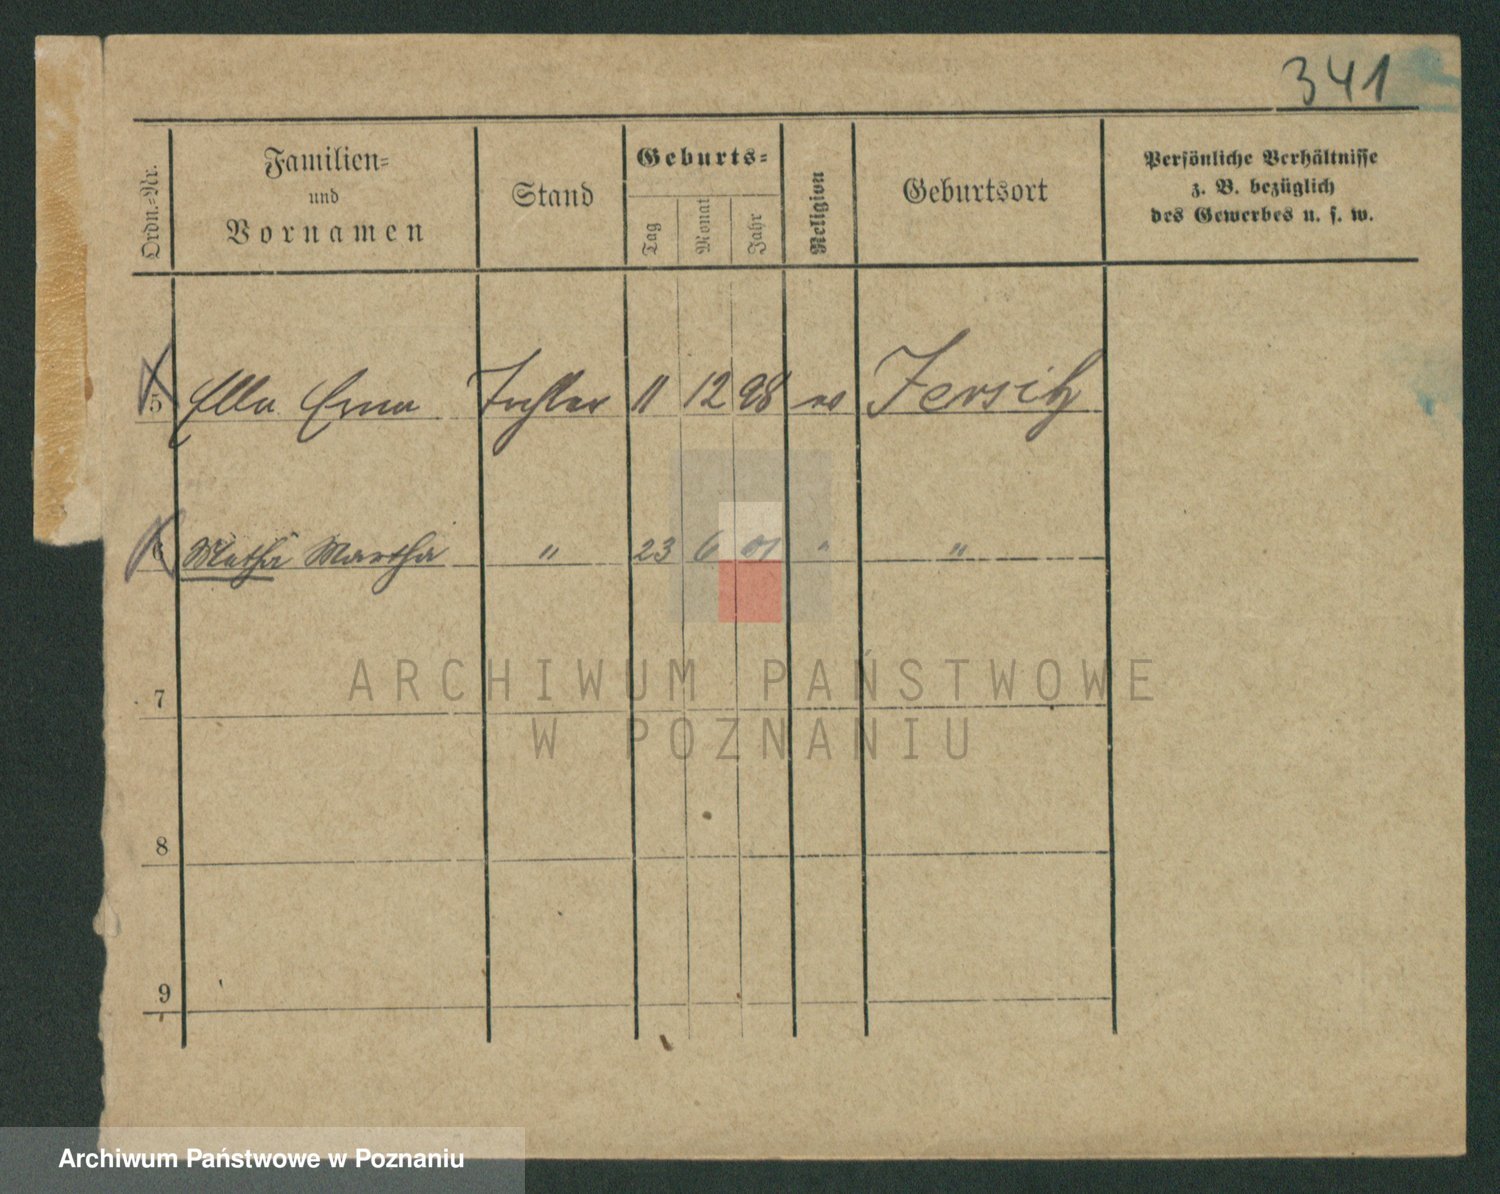 341
Ordn.-Nr.
Familien-
und
Vornamen
Stand
Geburts-
Tag
Monat
Jahr
Religion
Geburtsort
Persönliche Verhältnisse
z. B. bezüglich
des Gewerbes u. s. w.
5 Ella Erna Tochter 11 12 98 ev Jersitz
6 Martha " 23 6 01 " "
7
8
9
ARCHIWUM PAŃSTWOWE
W POZNANIU
Archiwum Państwowe w Poznaniu